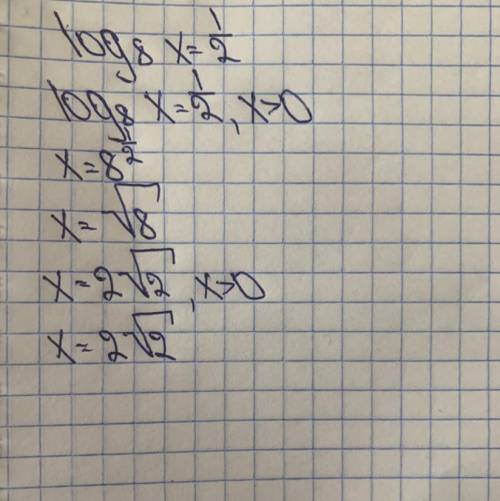 log₈ x = 1/2
log₈ x = 1/2, x>0
x = 8^(1/2)
x = √8
x = 2√2, x>0
x = 2√2